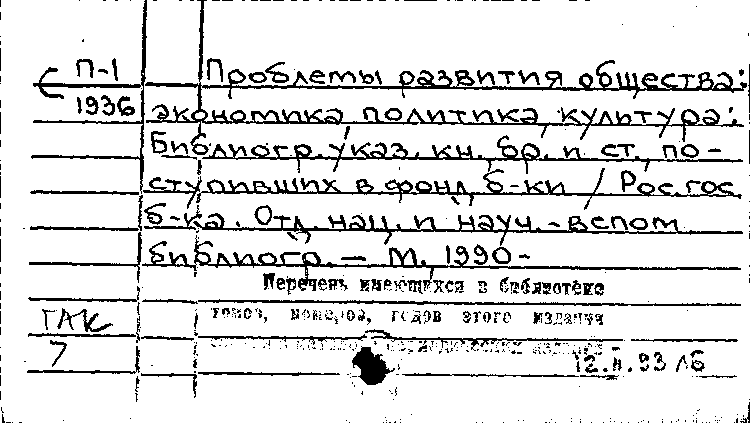 П-1 Проблемы развития общества:
1936 экономика, политика, культура:
Библиогр. указ. кн., бр. и ст., по-
ступивших в фонд б-ки / Рос. гос.
б-ка. Отд. нац. и науч.-вспом.
библиогр. — М., 1990-
Перечень имеющихся в библиотеке
томов, номеров, годов этого издания
ГАК
7
12.II.93 лб